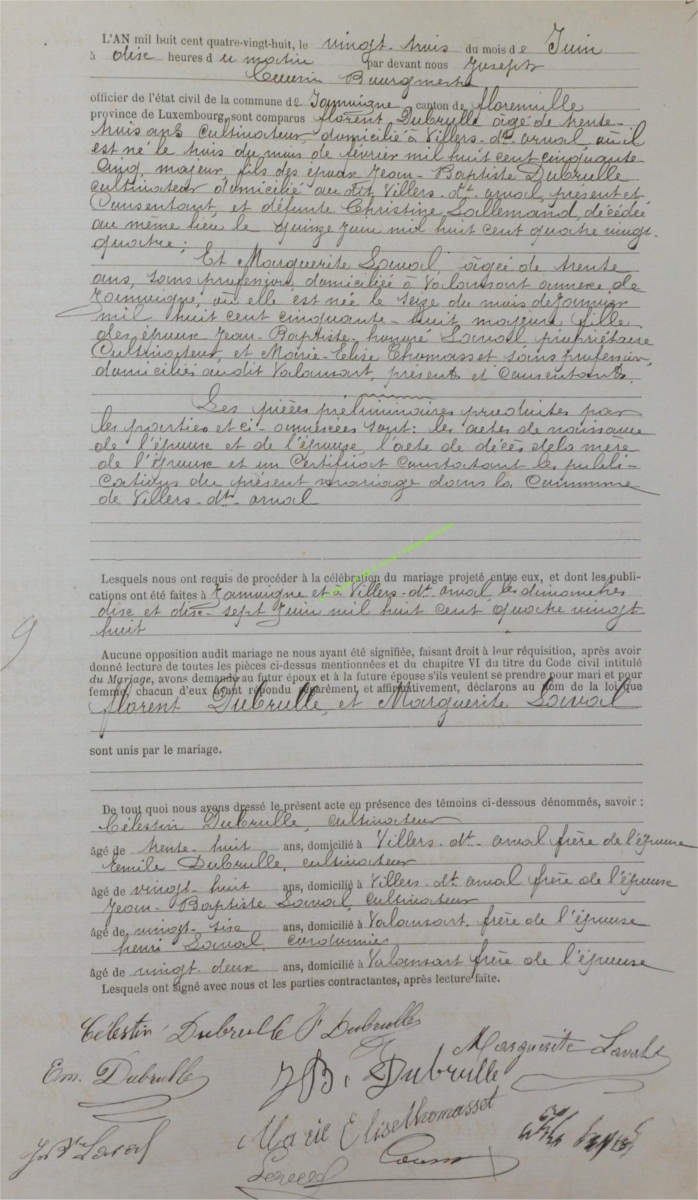 L'AN mil huit cent quatre-vingt-huit, le vingt-trois du mois de Juin
à dix heures du matin par devant nous Joseph
Bourgmestre
officier de l'état civil de la commune de Jamoigne, canton de Florenville
province de Luxembourg, sont comparus Florent Dubrulle âgé de trente-
trois ans cultivateur, domicilié à Villers-dt-arval où il
est né le trois du mois de février mil huit cent cinquante
cinq, majeur, fils des époux Jean-Baptiste Dubrulle
cultivateur domicilié audit Villers-dt-arval, présent et
consentant, et défunte Christine Lallemand, décédée
au même lieu le quinze juin mil huit cent quatre vingt-
quatre;
Et Marguerite Laval, âgée de trente
ans, sans profession, domiciliée à Valansart annexe de
Jamoigne, où elle est née le seize du mois de janvier
mil huit cent cinquante-huit majeure, fille
des époux Jean-Baptiste honoré Laval, propriétaire
Cultivateur, et Marie-Elise Thomasset sans profession,
domiciliés audit Valansart, présents et consentants.
Les pièces préliminaires produites par
les parties et ci-annexées sont: les actes de naissance
de l'époux et de l'épouse, l'acte de décès de la mère
de l'époux et un certificat constatant les publi-
cations du présent mariage dans la commune
de Villers-dt-arval
Lesquels nous ont requis de procéder à la célébration du mariage projeté entre eux, et dont les publi-
cations ont été faites à Jamoigne et à Villers-dt-arval les dimanches
dix et dix-sept Juin mil huit cent quatre vingt
huit
9
Aucune opposition audit mariage ne nous ayant été signifiée, faisant droit à leur réquisition, après avoir
donné lecture de toutes les pièces ci-dessus mentionnées et du chapitre VI du titre du Code civil intitulé
du Mariage, avons demandé au futur époux et à la future épouse s'ils veulent se prendre pour mari et pour
femme, chacun d'eux ayant répondu séparément, et affirmativement, déclarons au nom de la loi que
Florent Dubrulle, et Marguerite Laval
sont unis par le mariage.
De tout quoi nous avons dressé le présent acte en présence des témoins ci-dessous dénommés, savoir :
Célestin Dubrulle, cultivateur
âgé de trente-huit ans, domicilié à Villers-dt-arval frère de l'épouse
Emile Dubrulle, cultivateur
âgé de vingt-huit ans, domicilié à Villers-dt-arval frère de l'épouse
Jean-Baptiste Laval, cultivateur
âgé de vingt-six ans, domicilié à Valansart, frère de l'épouse
henri Laval, cordonnier
âgé de vingt-deux ans, domicilié à Valansart frère de l'épouse
Lesquels ont signé avec nous et les parties contractantes, après lecture faite.
Célestin Dubrulle F Dubrulle
Marguerite Laval
Em. Dubrulle
J B. Dubrulle
Marie Elise thomasset
J Bte Laval
Laval